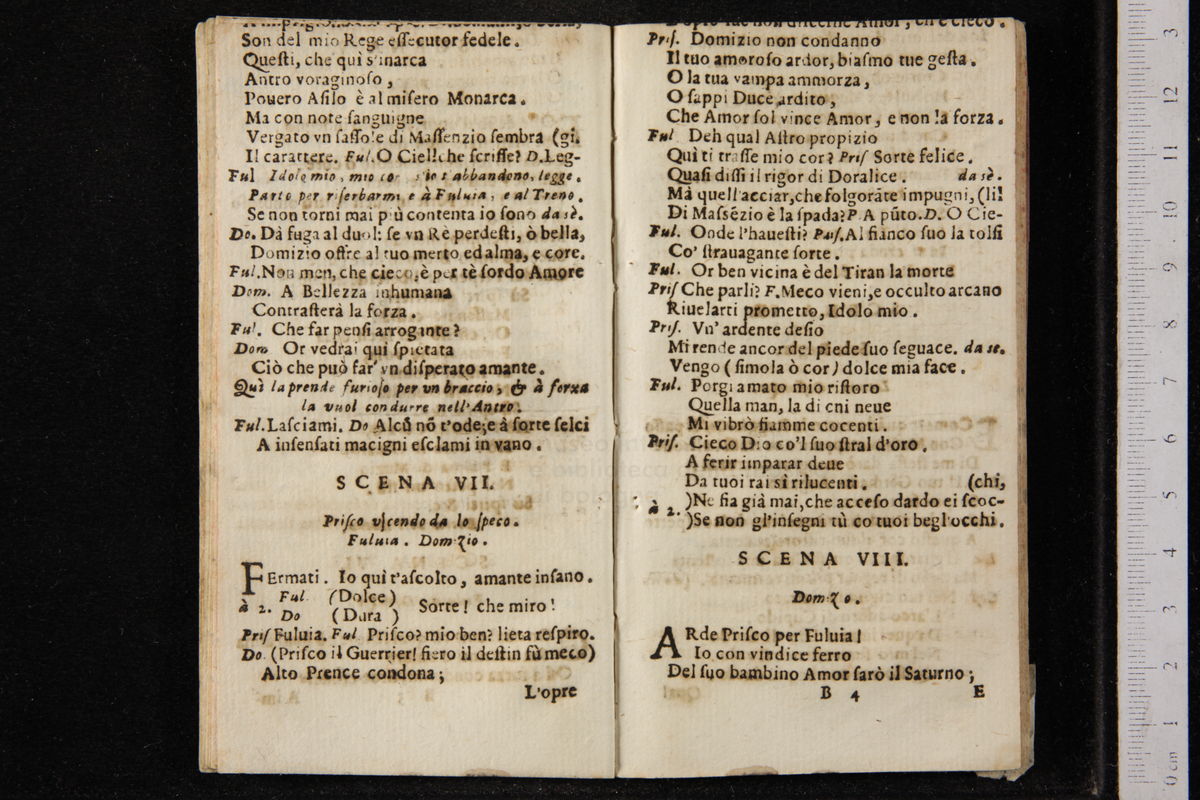 Son del mio Rege eſſecutor fedele.
Queſti, che quì s'inarca
Antro voraginoſo,
Pouero Aſilo è al miſero Monarca.
Ma con note ſanguigne
Vergato vn ſaſſo!e di Maſſenzio ſembra (gi.
Il carattere. Ful. O Ciel! che ſcriſſe? D. Leg-
Ful Idolo mio, mio cor s'io t'abbandono, legge.
Parto per riſerbarmi e à Fuluia, e al Treno.
Se non torni mai più contenta io ſono da sè.
Do. Dà fuga al duol: ſe vn Rè perdeſti, ò bella,
Domizio offre al tuo merto ed alma, e core.
Ful. Non men, che cieco, è per tè ſordo Amore
Dom. A Bellezza inhumana
Contraſterà la forza.
Ful. Che far penſi arrogante?
Dom Or vedrai qui ſpietata
Ciò che può far' vn diſperato amante.
Quì la prende furioſo per vn braccio, & à forza
la vuol condurre nell'Antro.
Ful. Laſciami. Do Alcū nō t'ode; e à ſorte ſelci
A inſenſati macigni eſclami in vano.
SCENA VII.
Priſco vſcendo da lo ſpeco.
Fuluia. Domizio.
FErmati. Io quì t'aſcolto, amante inſano.
à 2. Ful (Dolce)
Do (Dura) Sorte! che miro!
Priſ Fuluia. Ful Priſco? mio ben? lieta reſpiro.
Do. (Priſco il Guerrier! fiero il deſtin fù meco)
Alto Prence condona;
L'opre
L'opre tue non diſcerne Amor, ch'è cieco.
Priſ. Domizio non condanno
Il tuo amoroſo ardor, biaſmo tue geſta.
O la tua vampa ammorza,
O ſappi Duce ardito,
Che Amor ſol vince Amor, e non la forza.
Ful Deh qual Aſtro propizio
Quì ti traſſe mio cor? Priſ Sorte felice.
Quaſi diſſi il rigor di Doralice. da sè.
Mà quell'acciar, che folgorāte impugni, (li!
Di Maſsēzio è la ſpada? P. A pūto. D. O Cie-
Ful. Onde l'haueſti? Priſ. Al fianco ſuo la tolſi
Co' ſtrauagante ſorte.
Ful. Or ben vicina è del Tiran la morte
Priſ Che parli? F. Meco vieni, e occulto arcano
Riuelarti prometto, Idolo mio.
Priſ. Vn' ardente deſio
Mi rende ancor del piede ſuo ſeguace. da se.
Vengo (ſimola ò cor) dolce mia face.
Ful. Porgi amato mio riſtoro
Quella man, la di cni neue
Mi vibrò fiamme cocenti.
Priſ. Cieco Dio co'l ſuo ſtral d'oro,
A ferir imparar deue
Da tuoi rai sì rilucenti. (chi,
à 2. )Ne fia già mai, che acceſo dardo ei ſcoc-
)Se non gl'inſegni tù co tuoi begl'occhi.
SCENA VIII.
Domizio.
ARde Priſco per Fuluia!
Io con vindice ferro
Del ſuo bambino Amor ſarò il Saturno;
B 4 E